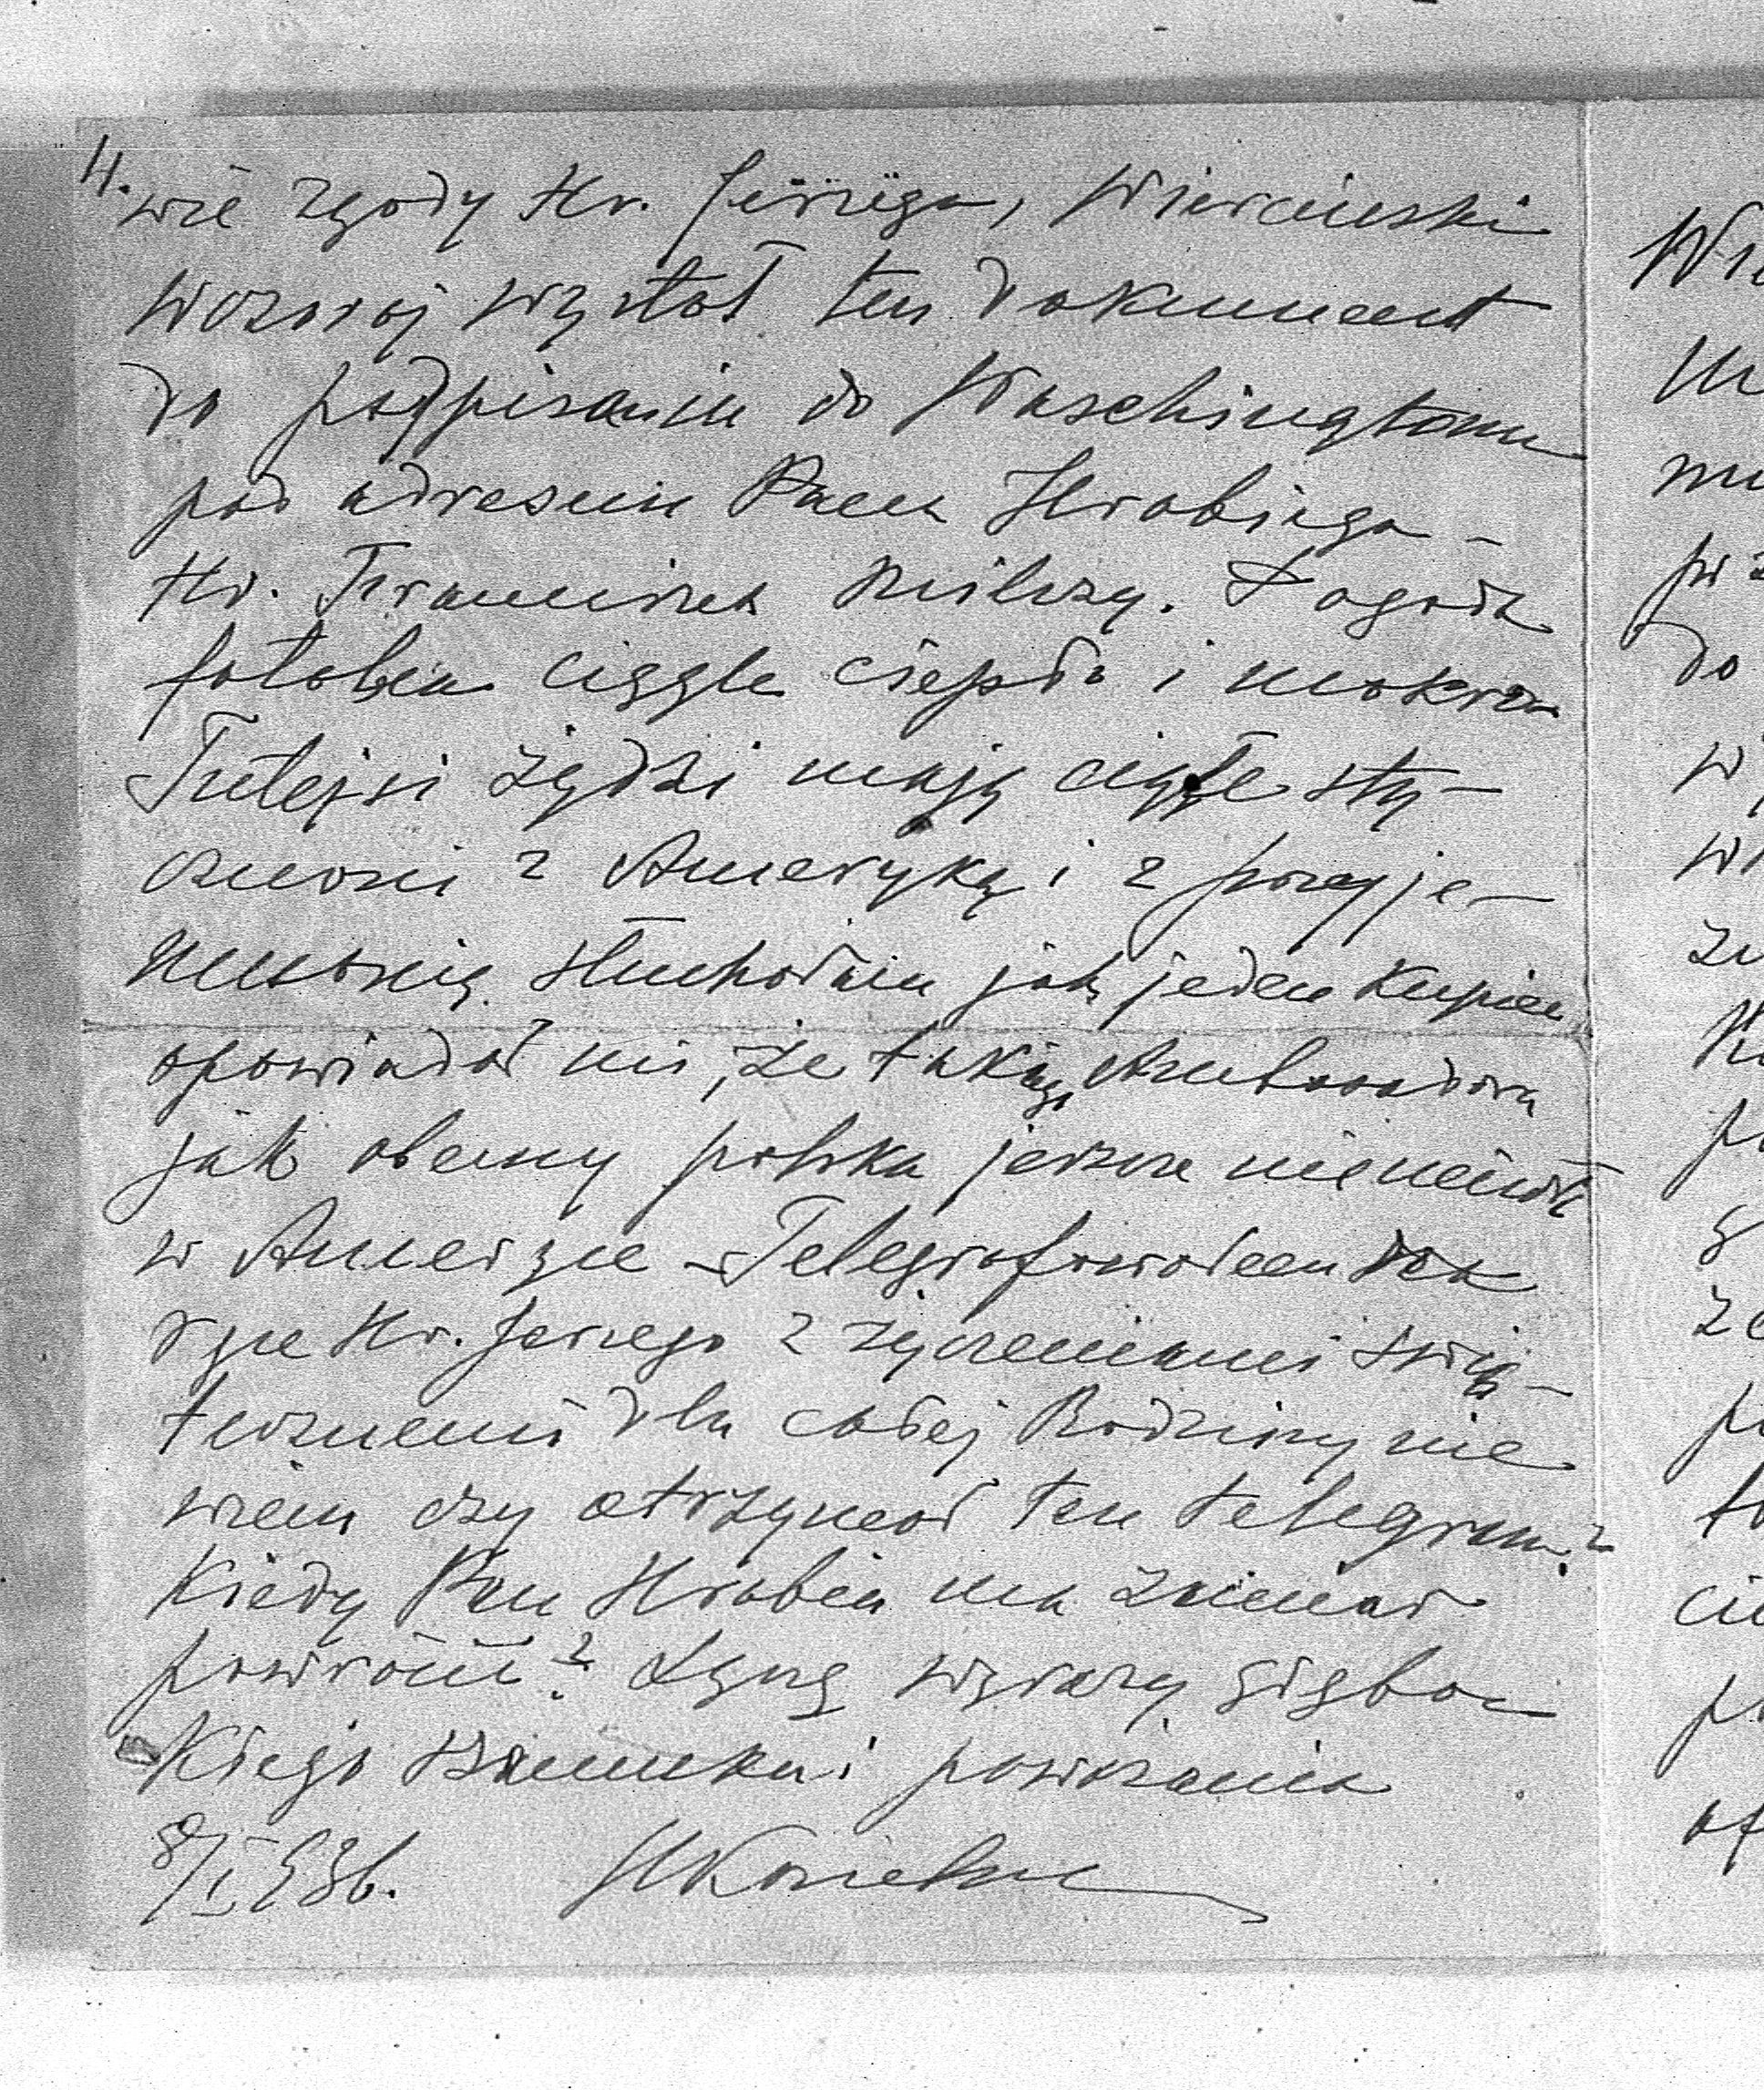 4.
wie zgody Hr. Jerzego, Wierciński
wczoraj wysłał ten dokument
do podpisania do Waschingtonu
pod adresem Pana Hrabiego –
Hr. Franciszek milczy. Pogoda
fatalna ciągle ciepło i mokro
Tutejsi żydzi mają ciągłe sty-
czności z Ameryką i z przyje-
mnością słuchałem jak jeden kupiec
opowiadał mi, że takiego Ambasadora
jak obecny polska jeszcze nie miała
w Ameryce – Telegrafowałem
Hr. Jerzego z życzeniami świą-
tecznemi dla całej Rodziny nie
wiem czy otrzymał ten telegram?
Kiedy Pan Hrabia ma zamiar
powrócić? Łączę wyrazy głębo-
kiego szacunku i poważania
8/I 936.